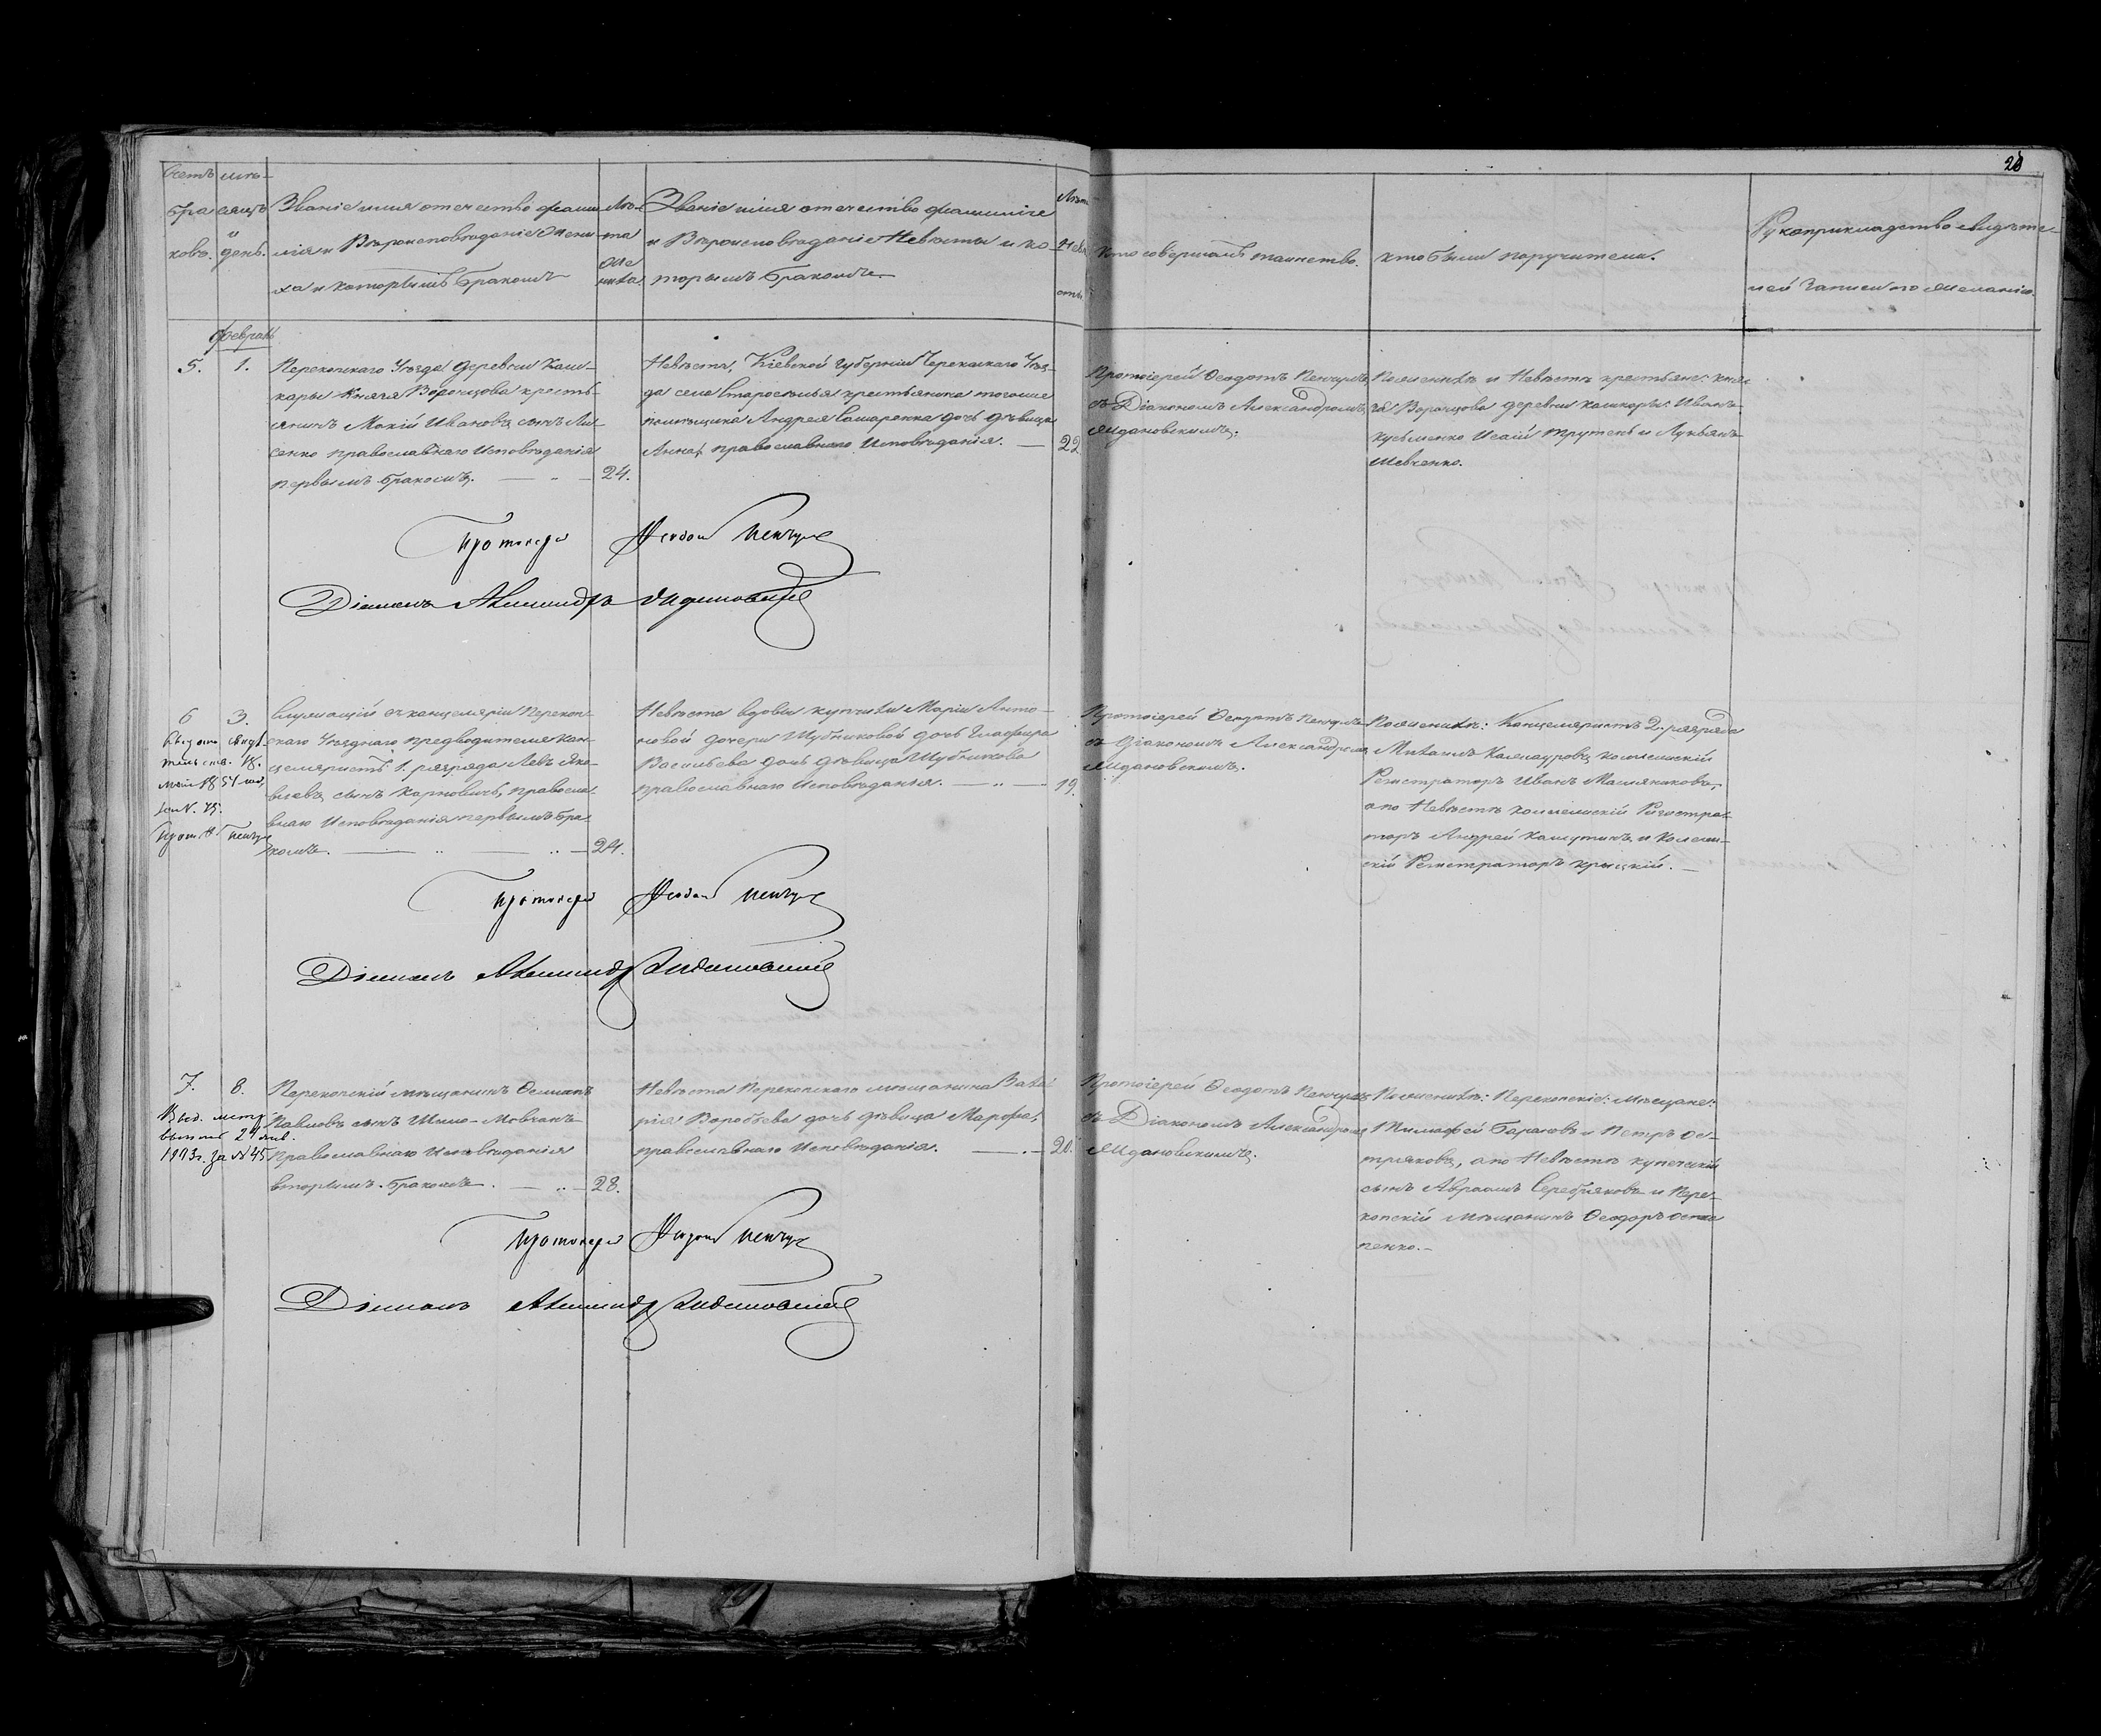 20
Счетъ мѣ-
бра сяцъ
и
ковъ. день.
Званіе имя отечество фами
лія и Вѣроисповѣданіе Жени
ха и которымъ бракомъ
Лѣ-
та
жениха.
Званіе имя отечество фамиліе
и Вѣроисповѣданіе Невѣсты и ко-
торымъ бракомъ
Кто совершалъ таинство.
кто были поручители.
Рукоприкладство свидѣте-
лей записи по желанію.
Февраль
5. 1.
Перекопскаго Уѣзда деревни Каш-
кары Князя Воронцова кресть-
янинъ Мокій Ивановъ сынъ Ли-
сенко православнаго Исповѣданія
первымъ бракомъ. 24.
Невѣста, Кіевской губерніи Черкаскаго Уѣз-
да села Староселья крестьянина
помѣщика Андрея Самаренка дочь дѣвица
Анна, православнаго Исповѣданія. 22
Протоіерей Феодотъ Пенчулъ
съ Діакономъ Александромъ
Ждановскимъ.
По женихѣ и Невѣстѣ крестьяне: Кня-
зя Воронцова деревни Кашкоры: Иванъ
Кузьменко Исаій Трутень и Лукьянъ
Шевченко.
Протоіерей Феодотъ Пенчулъ
Діаконъ Александръ Ждановскій
6 3.
Служащій въ канцеляріи Перекоп-
скаго Уѣзднаго предводителя Кан-
целяристъ 1. разряда Левъ Яко-
влевъ сынъ Карповичъ, правосла-
внаго Исповѣданія первымъ бра-
комъ. 24.
Невѣста вдовы купчихи Маріи Анто-
новой дочери Шубниковой дочь Глафира
Васильева дочь дѣвица Шубникова
православнаго Исповѣданія. 19.
Протоіерей Феодотъ Пенчулъ
съ Діакономъ Александромъ
Ждановскимъ.
По женихѣ: Канцеляристъ 2. разряда
Михаилъ Калмауровъ, коллежскій
Регистраторъ Иванъ Масляниковъ,
а по Невѣстѣ коллежскій Регистра-
торъ Андрей Калутинъ и Коллеж-
скій Регистраторъ Крыцкій.
Протоіерей Феодотъ Пенчулъ
Діаконъ Александръ Ждановскій
7. 8.
1873г. за N 45
Перекопскій мѣщанинъ
Павловъ сынъ Шило-Мовчанъ
православнаго Исповѣданія
вторымъ бракомъ. 28.
Невѣста Перекопскаго мѣщанина Заха
рія Воробьева дочь дѣвица Марфа,
православнаго Исповѣданія. 20.
Протоіерей Феодотъ Пенчулъ
съ Діакономъ Александромъ
Ждановскимъ.
По женихѣ: Перекопскіе: мѣщане:
Тимофей Тарасовъ и Петръ Ос-
тряковъ, а по Невѣстѣ купеческій
сынъ Авраамъ Серебряковъ и Пере-
копскій мѣщанинъ Феодоръ Оста
пенко.
Протоіерей Феодотъ Пенчулъ
Діаконъ Александръ Ждановскій